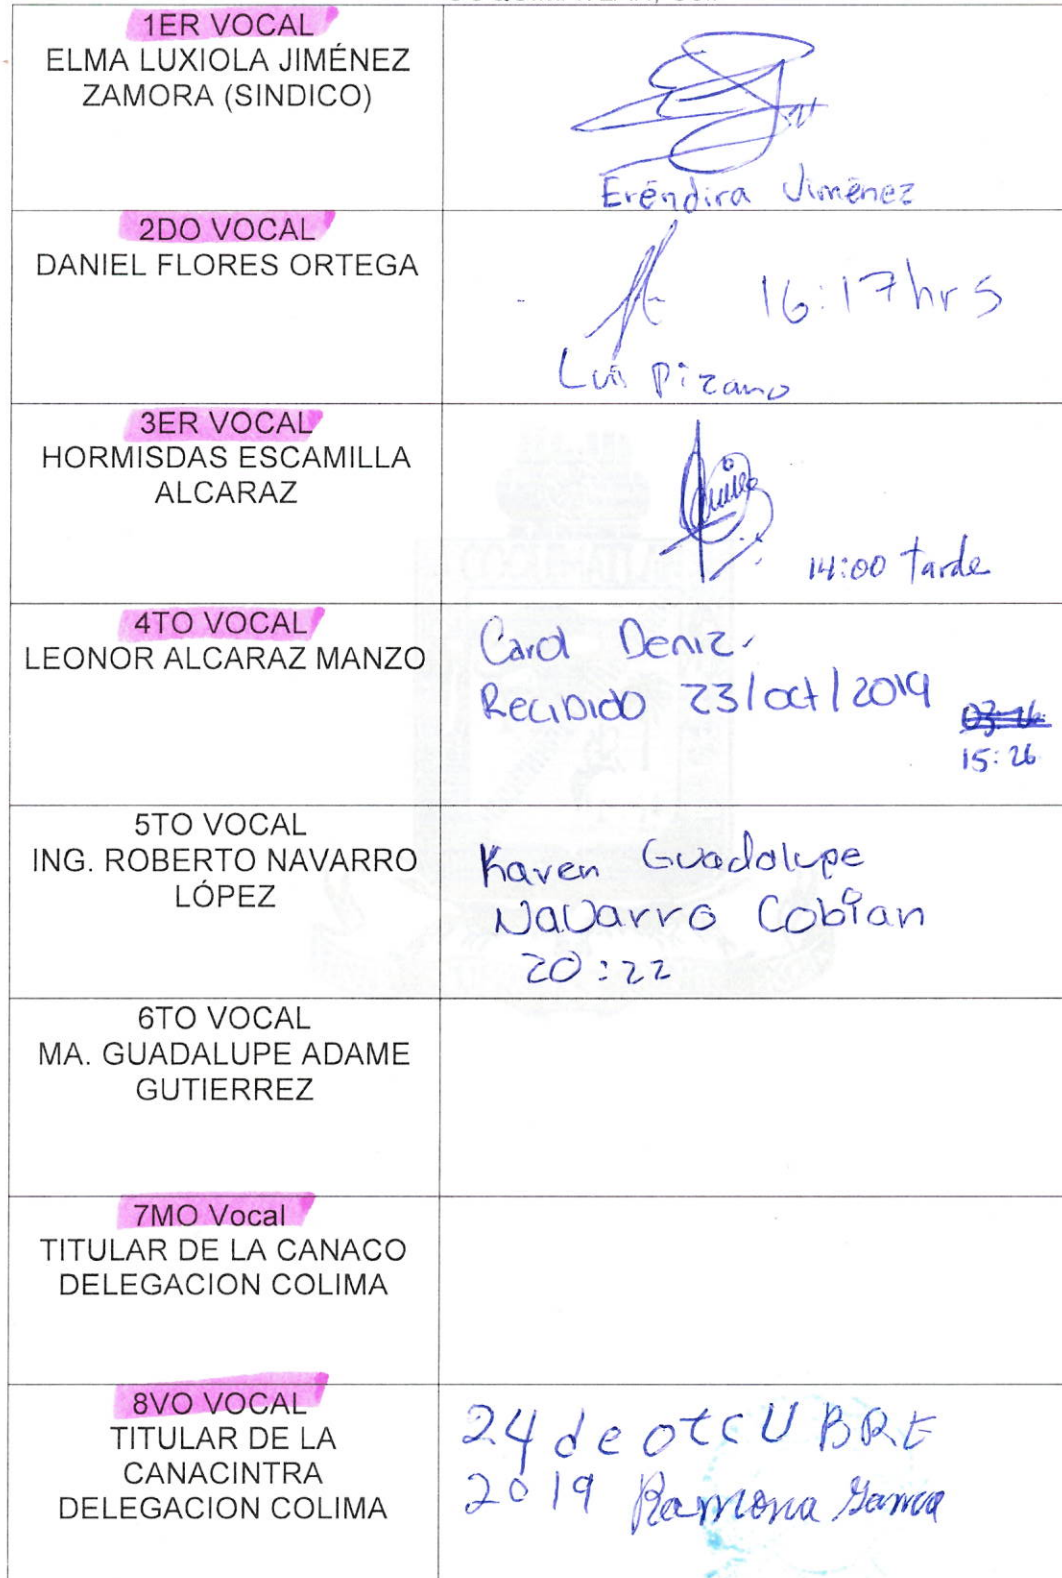 1ER VOCAL
ELMA LUXIOLA JIMÉNEZ
ZAMORA (SINDICO)
Eréndira Jiménez
2DO VOCAL
DANIEL FLORES ORTEGA
16:17 hrs
Luis Pizano
3ER VOCAL
HORMISDAS ESCAMILLA
ALCARAZ
14:00 tarde
4TO VOCAL
LEONOR ALCARAZ MANZO
Carol Deniz.
Recibido 23/oct/2019
03:26
15:26
5TO VOCAL
ING. ROBERTO NAVARRO
LÓPEZ
Karen Guadalupe
Navarro Cobian
20:22
6TO VOCAL
MA. GUADALUPE ADAME
GUTIERREZ
7MO Vocal
TITULAR DE LA CANACO
DELEGACION COLIMA
8VO VOCAL
TITULAR DE LA
CANACINTRA
DELEGACION COLIMA
24 de otcUBRE
2019 Ramona